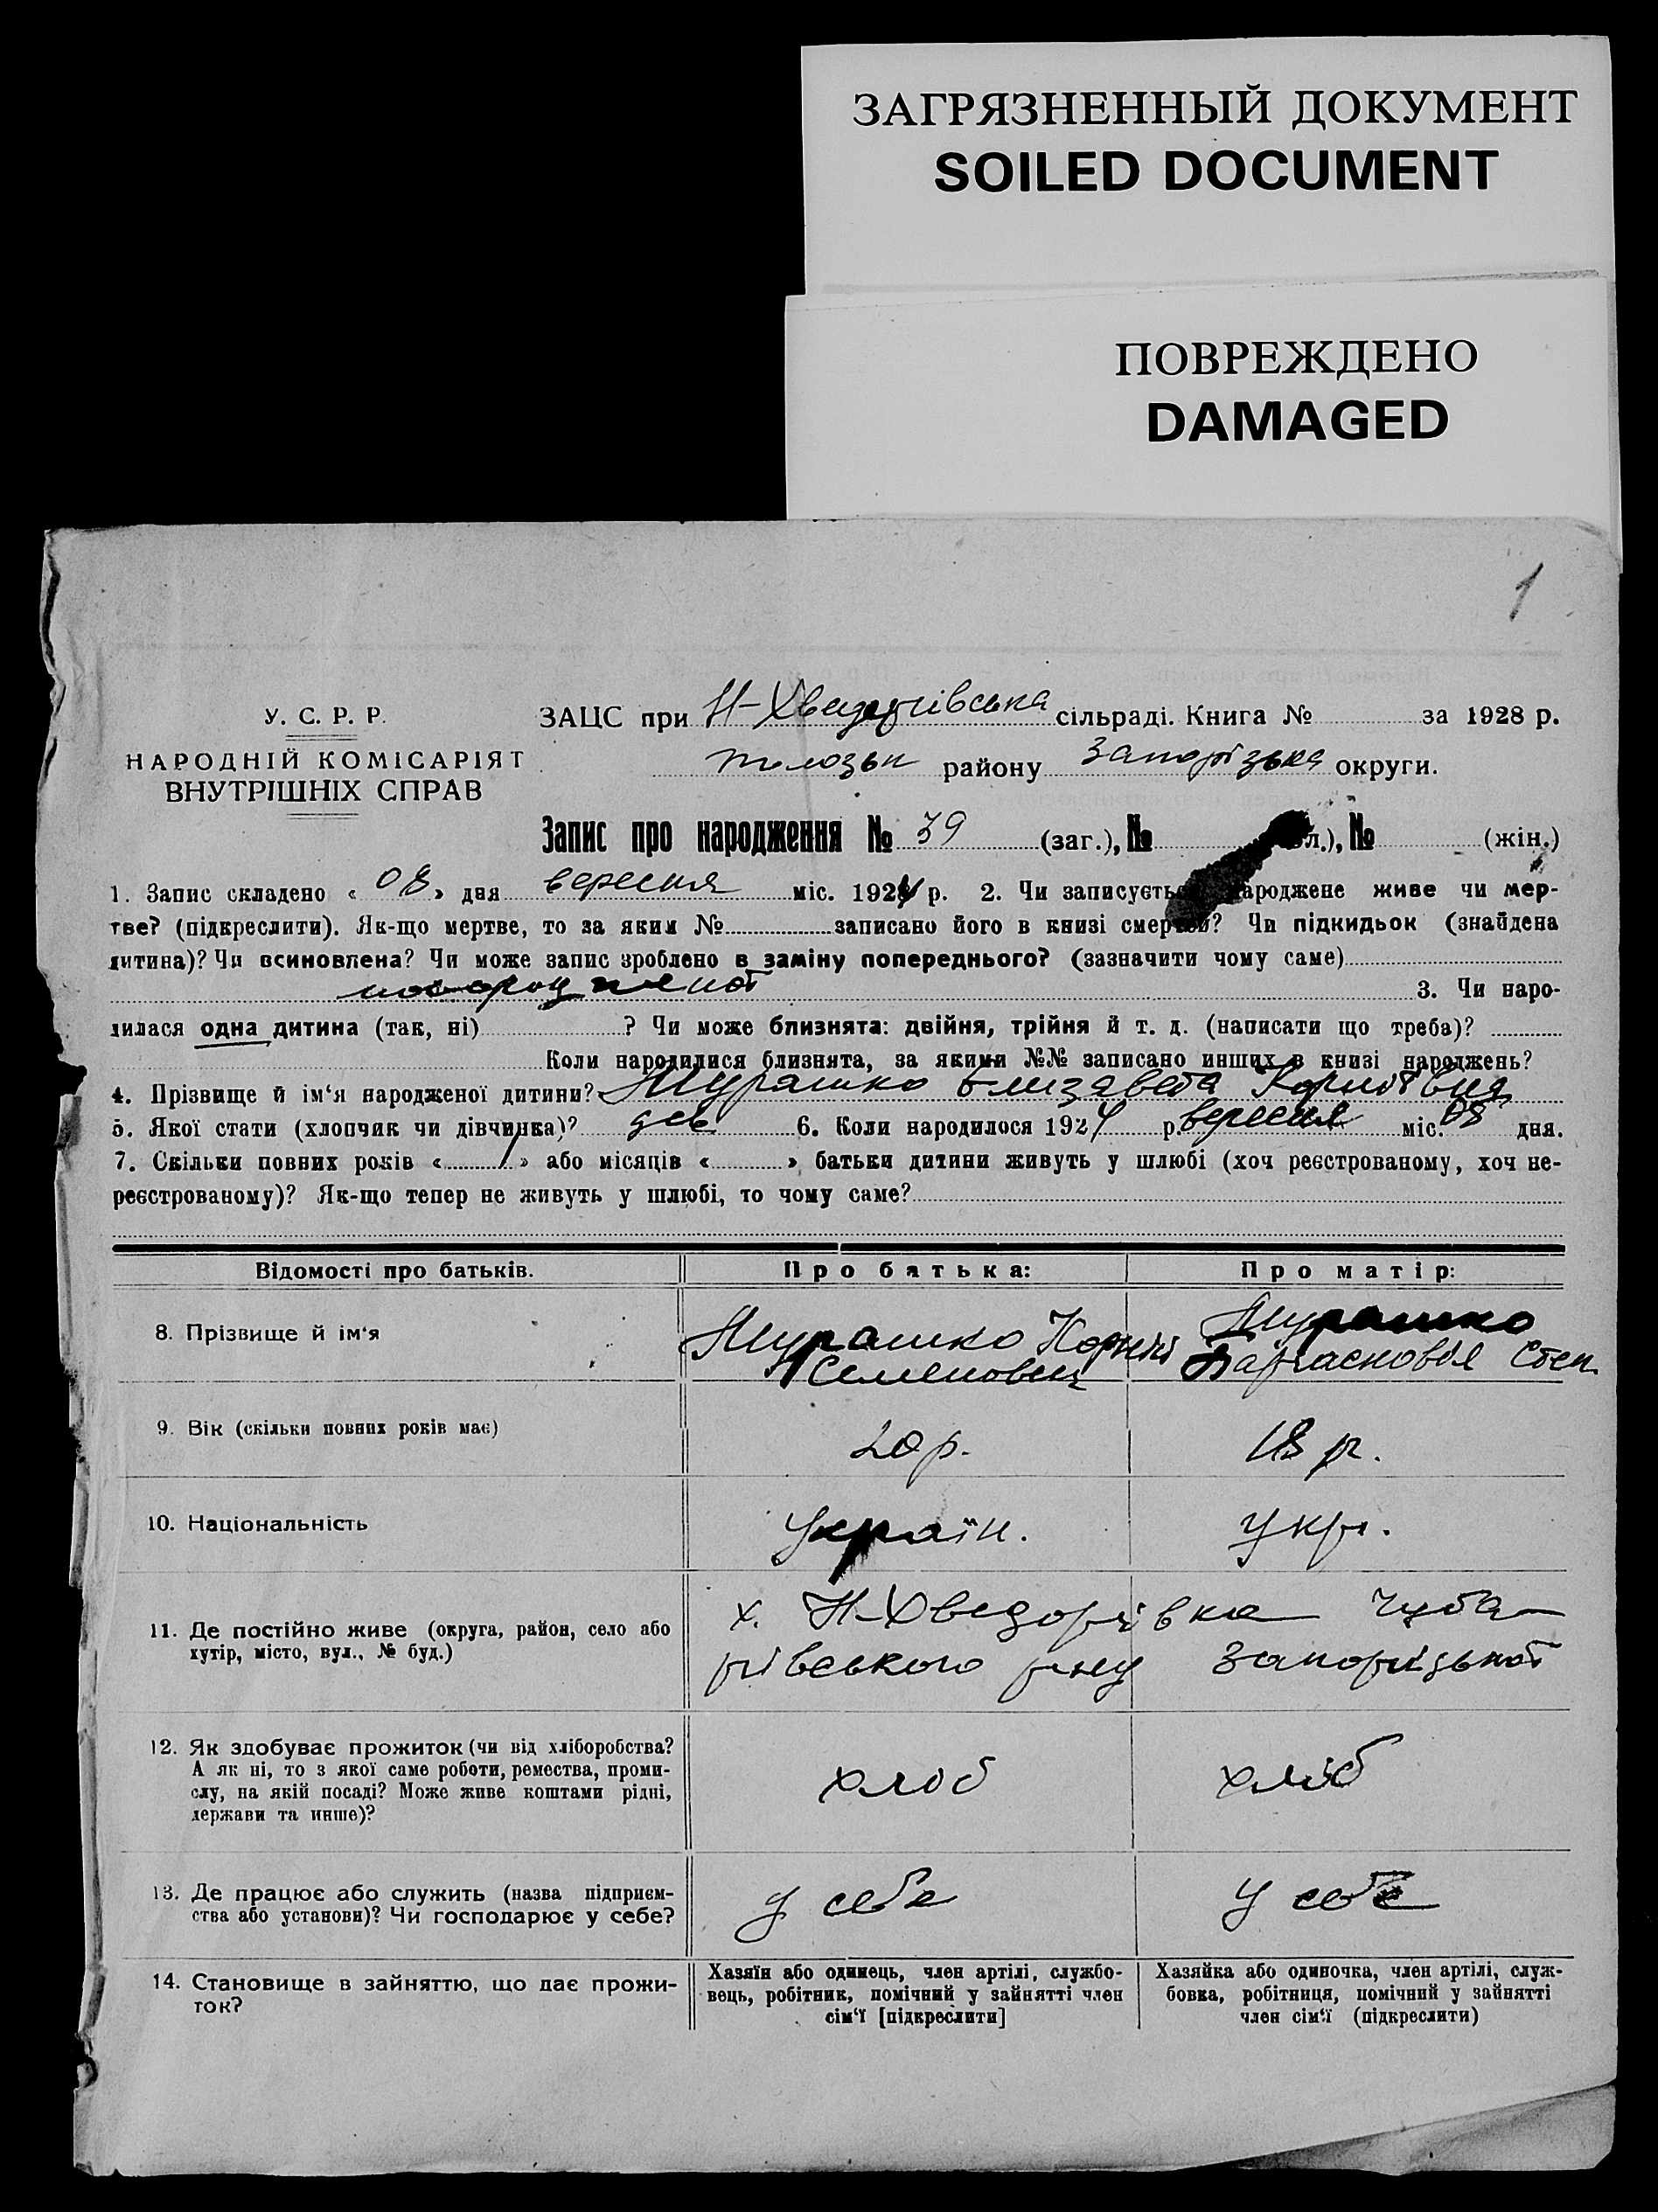 ЗАГРЯЗНЕННЫЙ ДОКУМЕНТ
SOILED DOCUMENT
ПОВРЕЖДЕНО
DAMAGED
1
У. С. Р. Р.
НАРОДНІЙ КОМІСАРІЯТ
ВНУТРІШНІХ СПРАВ
ЗАЦС при Н-Хведорівська сільраді. Книга № за 1928 р.
району Запорізька округи.
Запис про народження № 39 (заг.), № л.), № (жін.)
1. Запис складено « 08 » дня вересня міс. 1924 р. 2. Чи записується народжене живе чи мер-
тве? (підкреслити). Як-що мертве, то за яким № записано його в книзі смертей? Чи підкидьок (знайдена
дитина)? Чи всиновлена? Чи може запис зроблено в заміну попереднього? (зазначити чому саме)
3. Чи наро-
дилася одна дитина (так, ні) ? Чи може близнята: двійня, трійня й т. д. (написати що треба)?
Коли народилися близнята, за якими №№ записано инших в книзі народжень?
4. Прізвище й ім‘я народженої дитини? Мурашко Єлизавета Корніївна
5. Якої статі (хлопчик чи дівчинка)? дів 6. Коли народилося 1924 р. вересня міс. 08 дня.
7. Скільки повних років « 1 » або місяців « » батьки дитини живуть у шлюбі (хоч реєстрованому, хоч не-
реєстрованому)? Як-що тепер не живуть у шлюбі, то чому саме?
Відомості про батьків. Про батька: Про матір:
8. Прізвище й ім‘я Мурашко Корній Мурашко
Семенович Степ.
9. Вік (скільки повних років має) 20 р. 18 р.
10. Національність україн. укр.
11. Де постійно живе (округа, район, село або
хутір, місто, вул., № буд.)
х. Н-Хведорівка Чуба-
рівського р-ну Запорізької
12. Як здобуває прожиток (чи від хліборобства?
А як ні, то з якої саме роботи, ремества, проми-
слу, на якій посаді? Може живе коштами рідні,
держави та инше)?
хліб хліб
13. Де працює або служить (назва підприєм-
ства або установи)? Чи господарює у себе?
у себе у себе
14. Становище в зайняттю, що дає прожи-
ток?
Хазяїн або одинець, член артілі, службо-
вець, робітник, помічний у зайнятті член
сім‘ї [підкреслити]
Хазяйка або одиночка, член артілі, служ-
бовка, робітниця, помічний у зайнятті
член сім‘ї (підкреслити)